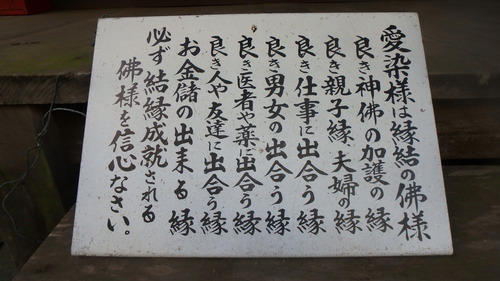 愛染様は縁結の佛様
良き神佛の加護の縁
良き親子縁、夫婦の縁
良き仕事に出合う縁
良き男女の出合う縁
良き医者や薬に出合う縁
良き人や友達に出合う縁
お金儲の出来る縁
必ず結縁成就される
佛様を信心なさい。